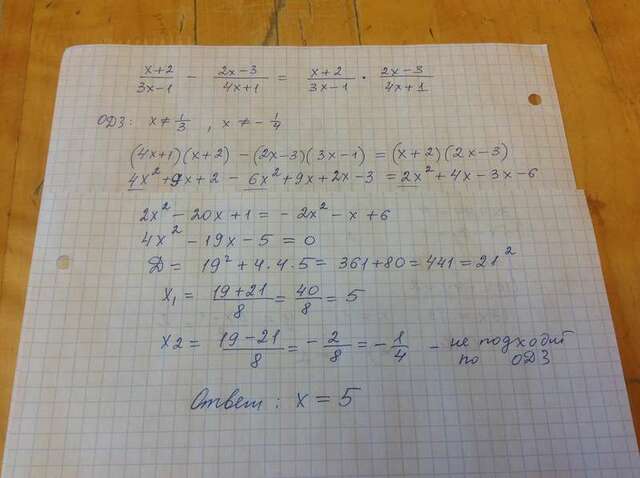 x+2/3x-1 - 2x-3/4x+1 = x+2/3x-1 · 2x-3/4x+1
ОДЗ: x≠1/3 , x≠-1/4
(4x+1)(x+2) - (2x-3)(3x-1) = (x+2)(2x-3)
4x²+9x+2 - 6x²+9x+2x-3 = 2x²+4x-3x-6
2x²-20x+1 = -2x²-x+6
4x²-19x-5=0
Д= 19²+4·4·5= 361+80=441=21²
x₁ = 19+21/8 = 40/8 = 5
x2 = 19-21/8 = -2/8 = -1/4 - не подходит по ОДЗ
Ответ: x=5